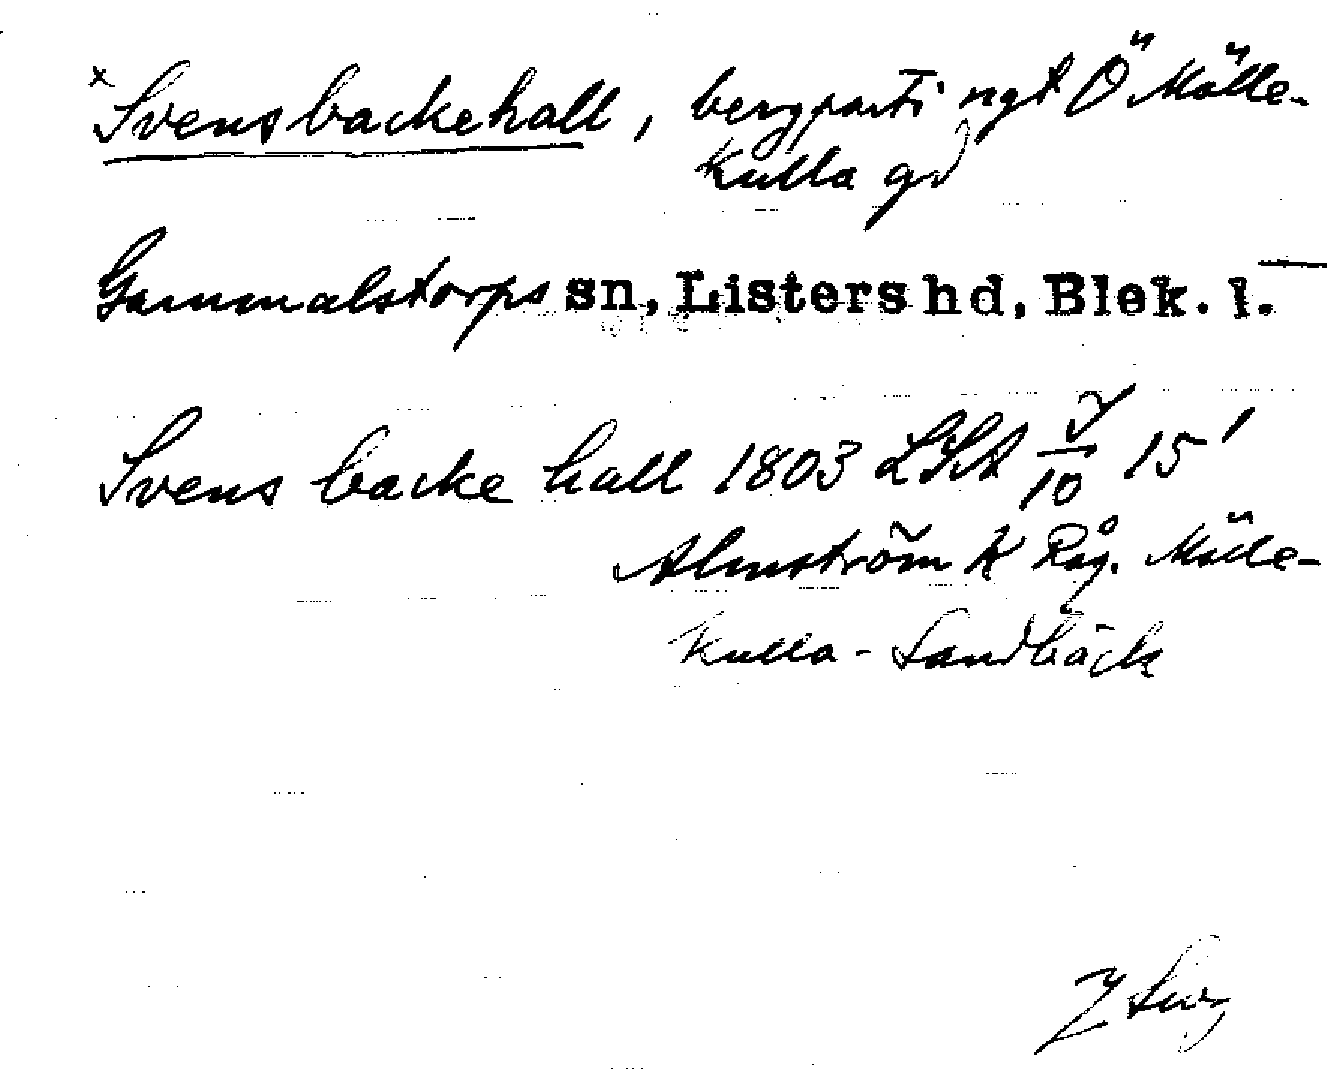 x Svensbackehall, bergparti ngt Ö Mölle-
kulla gd
Gammalstorps sn, Listers hd, Blek. l.
Svens backe hall 1803 LSA 15'
10
Almström K Råg. Mölle-
kulla - Sandbäck